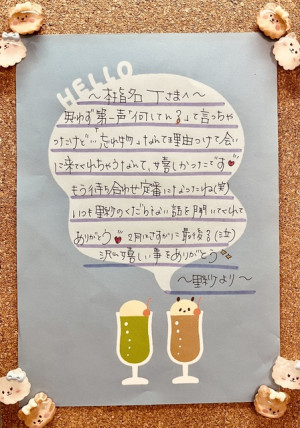 HELLO
〜本指名 Tさまへ〜
思わず第一声「何してん?」って言っちゃ
ったけど "忘れ物" なんて理由つけて会い
に来てくれちゃうなんて、嬉しかったです
もう待ち合わせ定番になったね(笑)
いつも里紗のくだらない話を聞いてくれて
ありがとう 2月はさすがに最後?(泣)
沢山嬉しい事をありがとう
〜里紗より〜